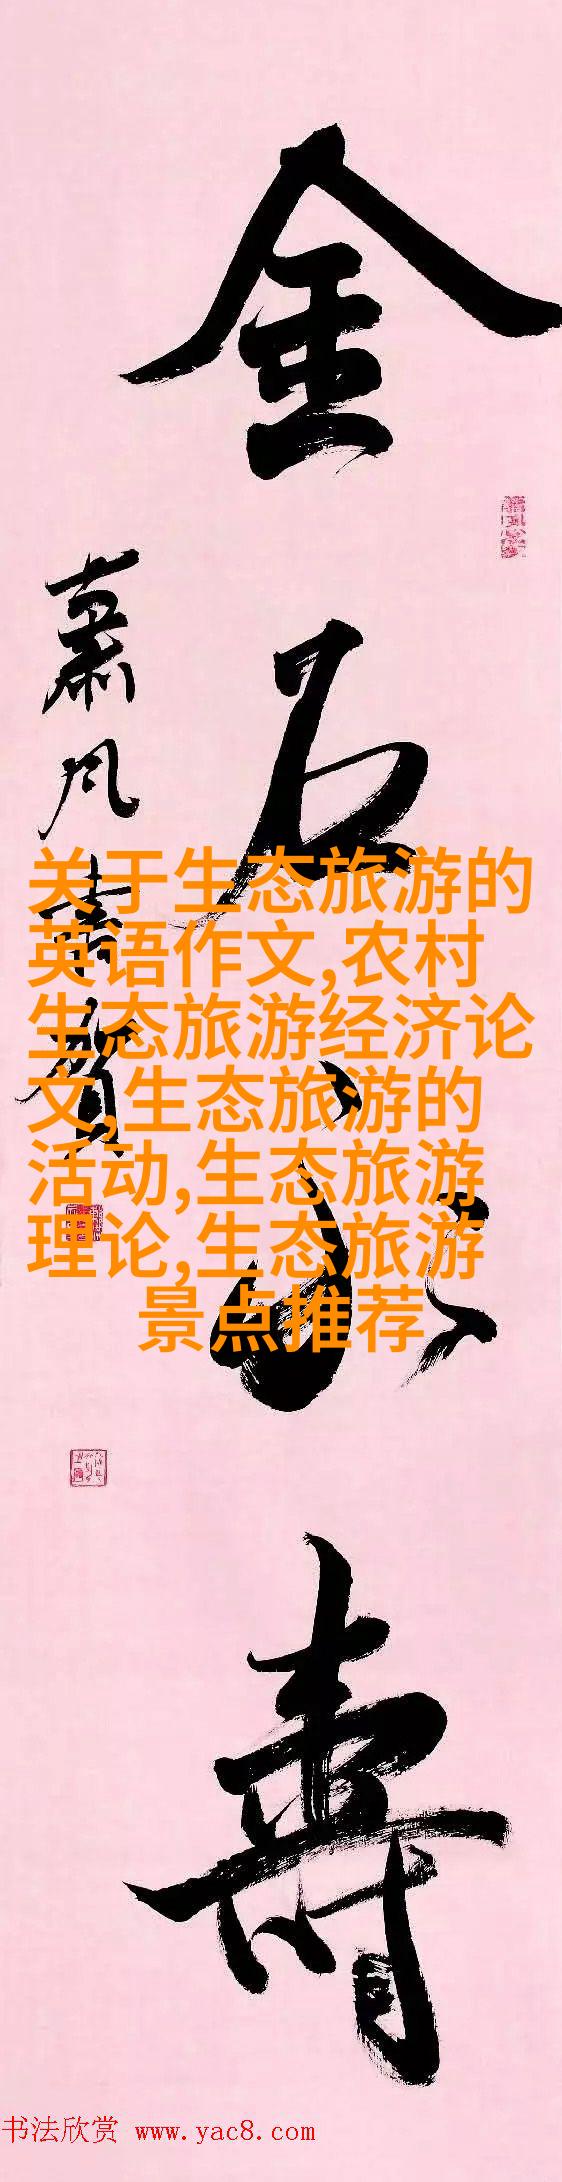 金石不朽壽
萧风书贺
关于生态旅游的
英语作文,农村
生态旅游经济论
文,生态旅游的
活动,生态旅游
理论,生态旅游
景点推荐
书法欣赏 www.yac8.com